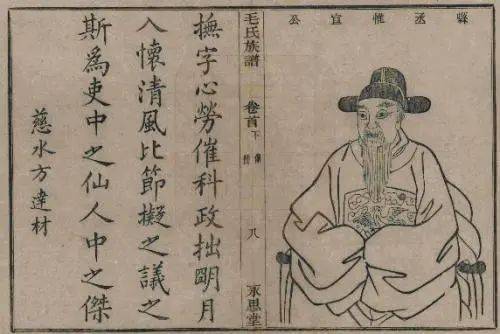 縣丞惟宣公
毛氏族譜
卷首下
像贊
八
永思堂
撫字心勞催科政拙明月
入懷清風比節擬之議之
斯為吏中之仙人中之傑
慈水方達材